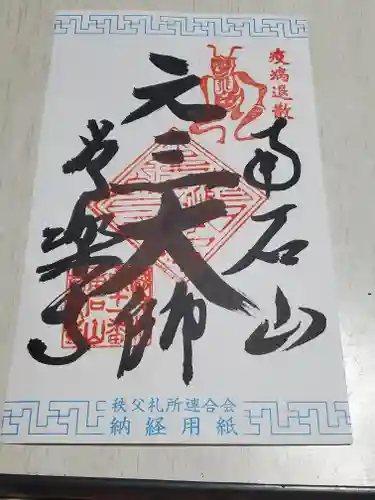 疫病退散
南石山
元三大師
常楽寺
秩父札所連合会
納経用紙